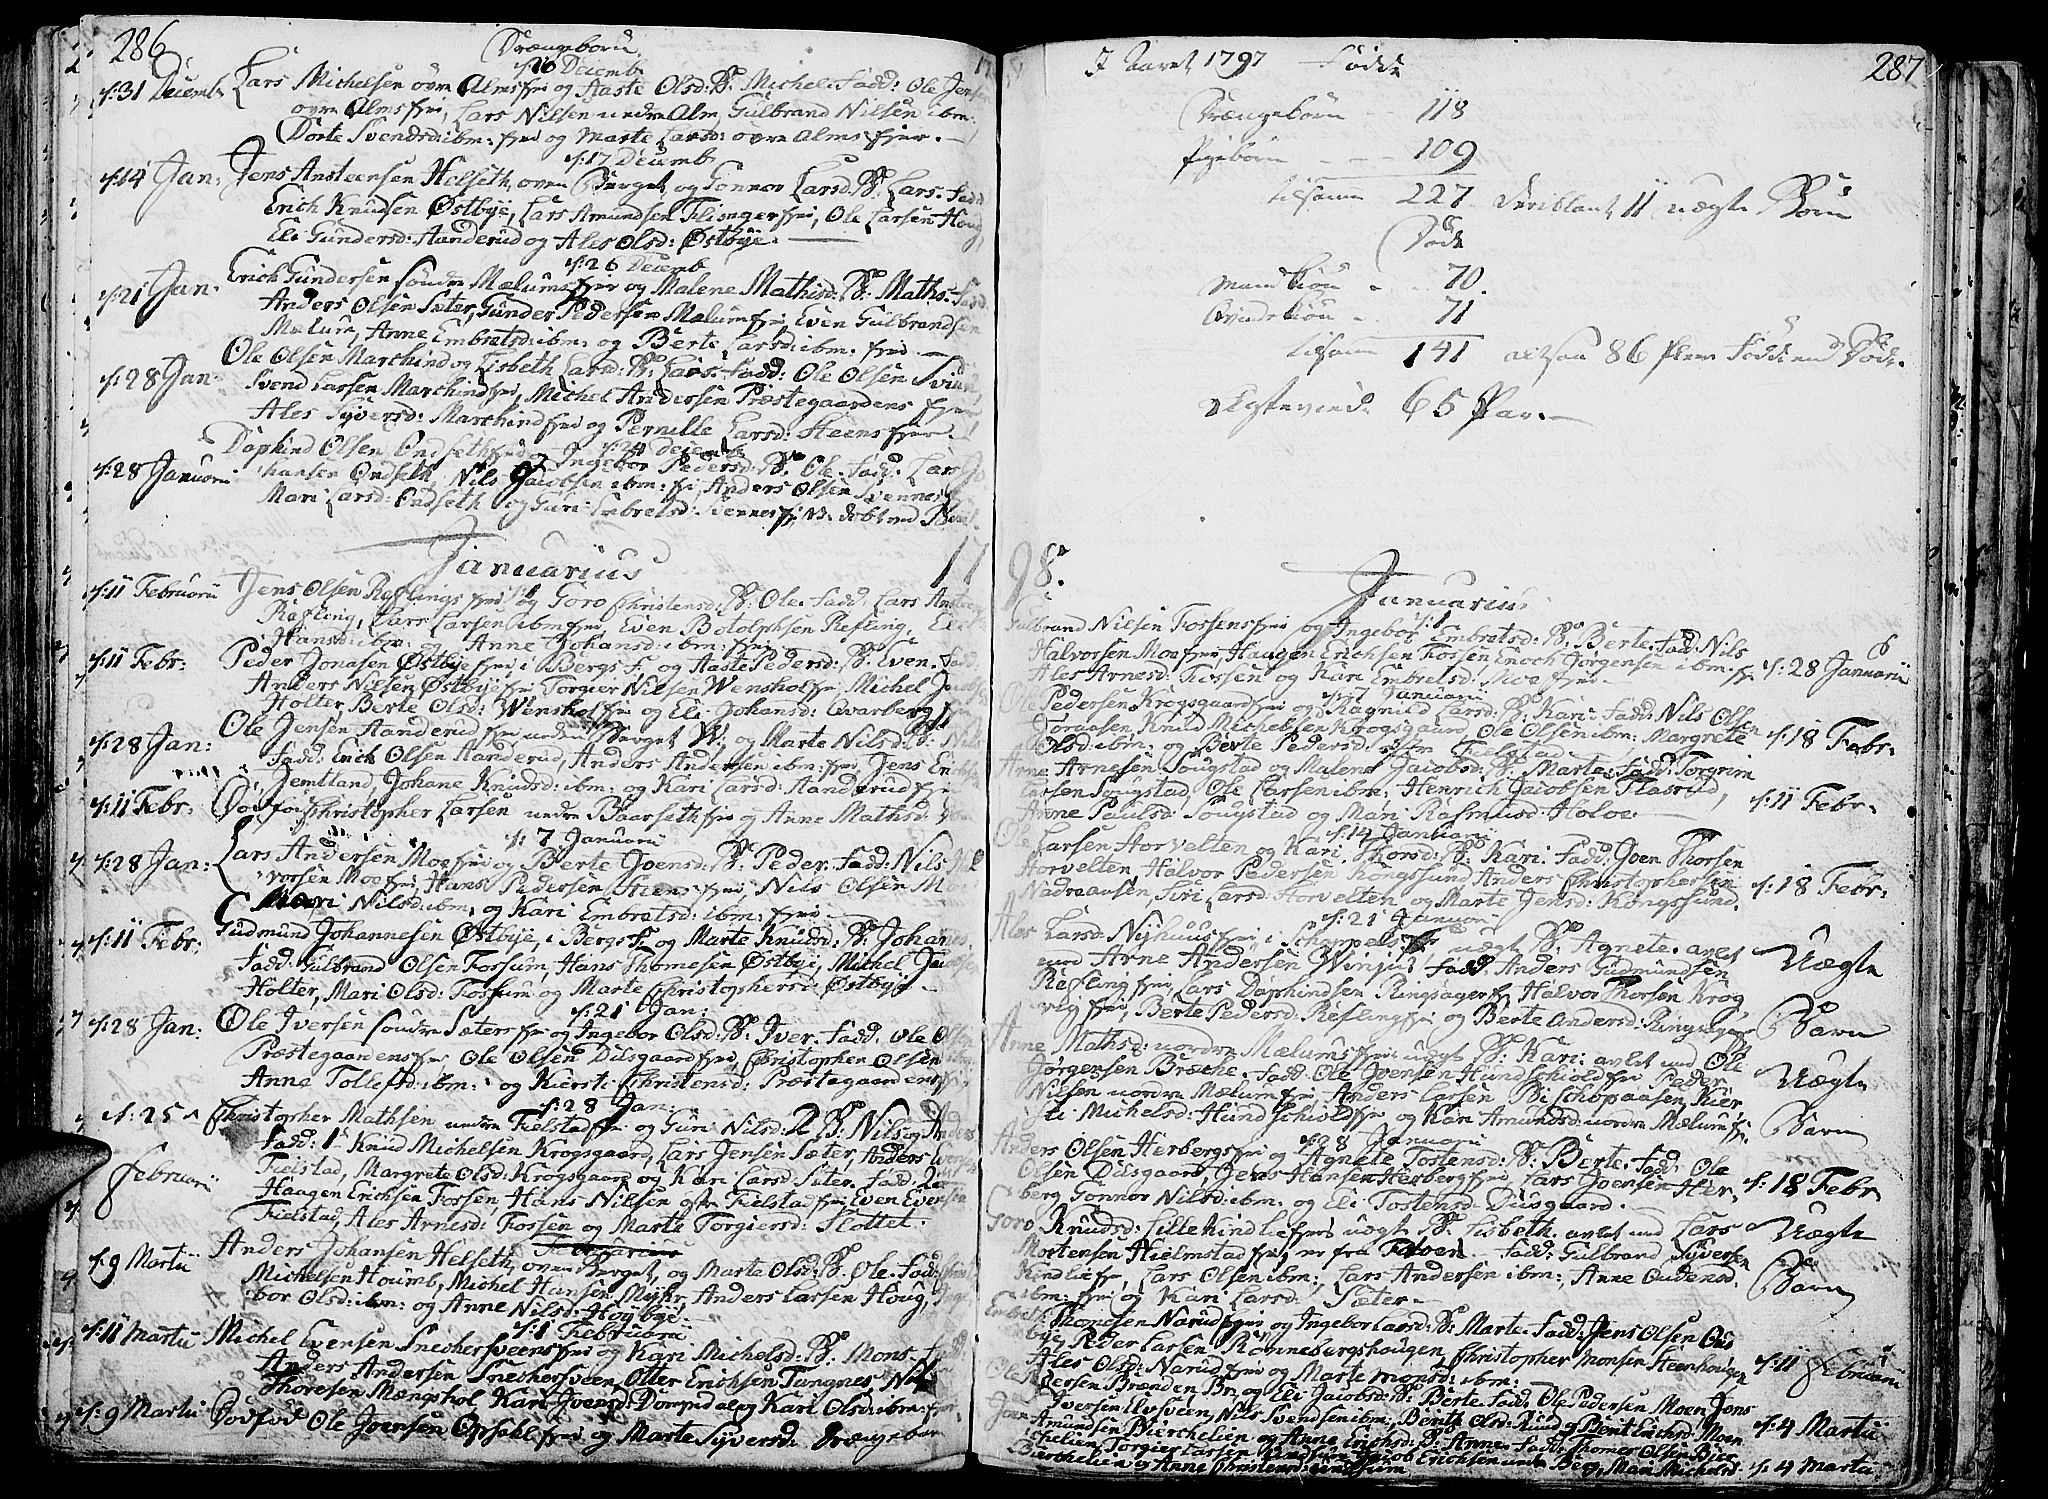 286
Drængebørn
d: 16 Decemb
d: 31 Decemb Lars Michelsen øvre Alms fier og Aaste Olsd: B: Michel. Fadd: Ole Jensen
øvre Alms fier, Lars Nilsen nedre Alm, Gulbrand Nilsen ibm.
Dorte Svendsd: ibm: fier og Marte Larsd: øvre Alms fier.
d: 17 Decemb
d: 14 Jan: Jens Ansteensen Helseth, oven Berget, og Gonnor Larsd: B: Lars. Fadd
Erich Knudsen Østbye, Lars Amundsen Flisager fier, Ole Larsen Houg,
Eli Gundersd: Aanderud og Ales Olsd: Østbye.
d: 26 Decemb
d: 21 Jan: Erich Gundersen søndre Mælums fier og Malene Mathisd: B: Maths. Fadd
Anders Olsen Sæter, Gunder Pedersen Mælum fier, Even Gulbrandsen
Mælum, Anne Embretsd: ibm: og Berte Larsd: ibm: fier.
d: 28 Jan: Ole Olsen Marchind og Lisbeth Larsd: B: Lars. Fadd: Ole Olsen
Svend Larsen Marchind fier, Michel Andersen Præstegaardens fier,
Ales Syversd: Marchind fier og Pernille Larsd: Steens fier.
d: 24 Decemb
d: 28 Januarii Daphind Olsen Ondseth fier og Ingebor Pedersd: B: Ole. Fadd: Lars Jo
hansen Ondseth, Nils Jacobsen ibm: fi, Anders Olsen Svennes fier
Mari Larsd: Ondseth og Guri Embretsd: Svennes fier
Januarius 17
d: 1
d: 11 Februarii Jens Olsen Reflings fier og Goro Christensd: B: Ole. Fadd: Lars
Refling, Lars Larsen ibm fier, Even Botolphsen Refling, Eli
Hansd: ibm: Anne Johansd: ibm: fier
d: 11 Febr: Peder Jonasen Østbye fier i Bergs F. og Aaste Pedersd: B: Even. Fadd
Anders Nilsen Østbye fier, Torgier Nilsen Wenshol fier, Michel Jacobsen
Holter, Berte Olsd: Wenshol fier og Eli Johansd: Qvarberg fier
d: 28 Jan: Ole Jensen Aanderud fier neden Berget W. og Marte Nilsd: B: Nils
Fadd: Erich Olsen Aanderud, Anders Andersen ibm: fier, Jens Erichsen
Jemtland, Johane Knudsd: ibm: og Kari Larsd: Aanderud fier
d: 11 Febr: Dødfød Christopher Larsen nedre Baarseth fier og Anne Mathsd:
d: 7 Januarii
d: 28 Jan: Lars Andersen Moe fier og Berte Joensd: B: Peder. Fadd: Nils Hal
vorsen Moe fier, Hans Pedersen Steens fier Nils Olsen
Mari Nilsd: ibm, og Kari Embretsd: ibm: fier
d: 11 Febr: Gudmund Johannesen Østbye, i Bergs F. og Marte Knudsd: B: Johannes
Fadd: Gulbrand Olsen Fossum, Hans Thomesen Østbye, Michel Jacobsen
Holter, Mari Olsd: Fossum og Marte Christophersd: Østbye
d: 21 Jan:
d: 28 Jan: Ole Iversen søndre Sæters fier og Ingebor Olsd: B: Iver. Fadd: Ole Olsen
Præstegaardens fier Ole Olsen Dilsgaard fier, Christopher Olsen
Anne Tollefsd: ibm: og Kiersti Christensd: Præstegaardens fi:
d: 28 Jan:
d: 25 Februarii Christopher Mathsen nedre Fielstad fier og Guri Nilsd: 2 B: Nils og Anders
Fadd: 1. Knud Michelsen Krogsgaard, Lars Jensen Sæter, Anders
Fielstad, Margrete Olsd: Krogsgaard og Kari Larsd: Sæter. Fadd:
Haagen Erichsen Fossen, Hans Nilsen øfre Fielstad fier, Even Evensen
Fielstad, Ales Arnesd: Fossen og Marte Torgiersd: Slottet.
Februarius
d: 9 Martii Anders Johansen Helseth, oven Berget, og Marte Olsd: B: Ole. Fadd:
Michelsen Houmb, Michel Hansen Myhr, Anders Larsen Houg,
bor Olsd: ibm: og Anne Nilsd: Høybye.
d: 1 Februarii
d: 11 Martii Michel Evensen Snechersveens fier og Kari Michelsd: B: Mons. Fadd
Anders Andersen Snechersveen, Otter Erichsen Tangnes,
Thoresen Mængshol, Kari Joensd: og Kari Olsd: ibm: fier.
d: 9 Martii Dødfød Ole Joensen Opsahl fier og Marte Syversd: Drængebørn
287
I Aaret 1797 Fødde
Drængebørn 118
Pigebørn 109
tilsamn 227 deriblant 11 uægte Børn
Døde
Mandkiøn 70.
Qvindekiøn 71
tilsamn 141 altsaa 86 fleer Fødde end Døde.
Ægteviede 65 Par.
98.
Januarius
d: 1
Gulbrand Nilsen Fossens fier og Ingebor Embretsd: B: Berte. Fadd: Nils
Halvorsen Moe fier Haagen Erichsen Fossen Enoch Jørgensen ibm: fier d: 28 Januarii
Ales Arnesd: Fossen og Kari Embretsd: Moe fier.
d: 7 Januarii
Ole Pedersen Krogsgaard fier og Ragnild Larsd: B: Kari. Fadd: Nils Olsen
Knud Michelsen Krogsgaard, Ole Olsen ibm: Margrete d: 18 Febr:
Olsd: ibm: og Berte Pedersd: Fielstad
Arne Arnesen Sougstad og Malene Jacobsd: B: Marte. Fadd: Torgrim
Larsen Sougstad, Ole Larsen ibm: Henrich Jacobsen Flasrud, d: 11 Febr:
Anne Paulsd: Sougstad og Mari Rasmusd: Holoe.
d: 14 Januarii
Ole Larsen Horvelten og Kari Thorsd: B: Kari. Fadd: Joen Thorsen
Horvelten, Halvor Pedersen Kongssund Anders Christophersen d: 18 Febr:
Nadreaasen, Siri Larsd: Horvelten og Marte Jensd: Kongssund.
d: 21 Januarii
Ales Larsd: Nyhuus fier i uægt B: Agnete. avlet
med Arne Andersen Winjui, Fadd: Anders Gudmundsen Uægte
Refling fier, Lars Daphindsen Ringsager fi, Halvor Thorsen Krog
vig fier, Berte Pedersd: Refling fier og Berte Andersd: Ringsager Barn
Anne Mathsd: nordre Mælums fier uægt B: Kari: avlet med Ole
Jørgensen Bræche. Fadd: Ole Joensen Hundschiold fier, Peder Uægte
Nilsen nordre Mælum fier, Anders Larsen Bischopaasen, Kier
sti Michelsd: Hundschiold fier og Kari Amundsd: nordre Mælum fier Barn
d: 28 Januarii
Anders Olsen Herbergs fier og Agnete Tostensd: B: Berte. Fadd: Ole
Olsen Dilsgaard, Jens Hansen Herberg fier, Lars Joensen Her, d: 18 Febr
berg Gonnor Nilsd: ibm: og Eli Tostensd: Dilsgaard.
Goro Knudsd: Lille Kindlie fiers uægte B: Lisbeth. avlet med Lars Uægte
Mortensen Hielmstad fier, er fra Fadd: Gulbrand Syversen
Kindlie fier, Lars Olsen ibm:, Lars Andersen ibm:, Anne Oudensd: Barn
ibm: fier og Kari Larsd: Sæter.
Embret Thonesen Narud fier og Ingebor Larsd: B: Marte. Fadd: Jens Olsen
bye, Peder Larsen Rønnebergshougen, Christopher Monsen Steenhougen d: 11 Februarii
Ales Olsd: Narud fier og Marte Monsd: ibm:
Ole Pedersen Brænden Br, og Eli Jacobsd: B: Berte. Fadd: Ole Pedersen Moen Jens
Iversen Ulvsveen, Nils Svendsen ibm:, Berthe Olsd: Ruud og Berit Erichsd: Moen d: 4 Martii
Joen Amundsen Bierchelien og Anne Erichsd: B: Anne. Fadd: Thomes Olsen Bier
chelien Torgier Larsen Jacob Erichsen Berg, Mari Michelsd:
Bierchelien og Anne Christensd: d: 4 Martii